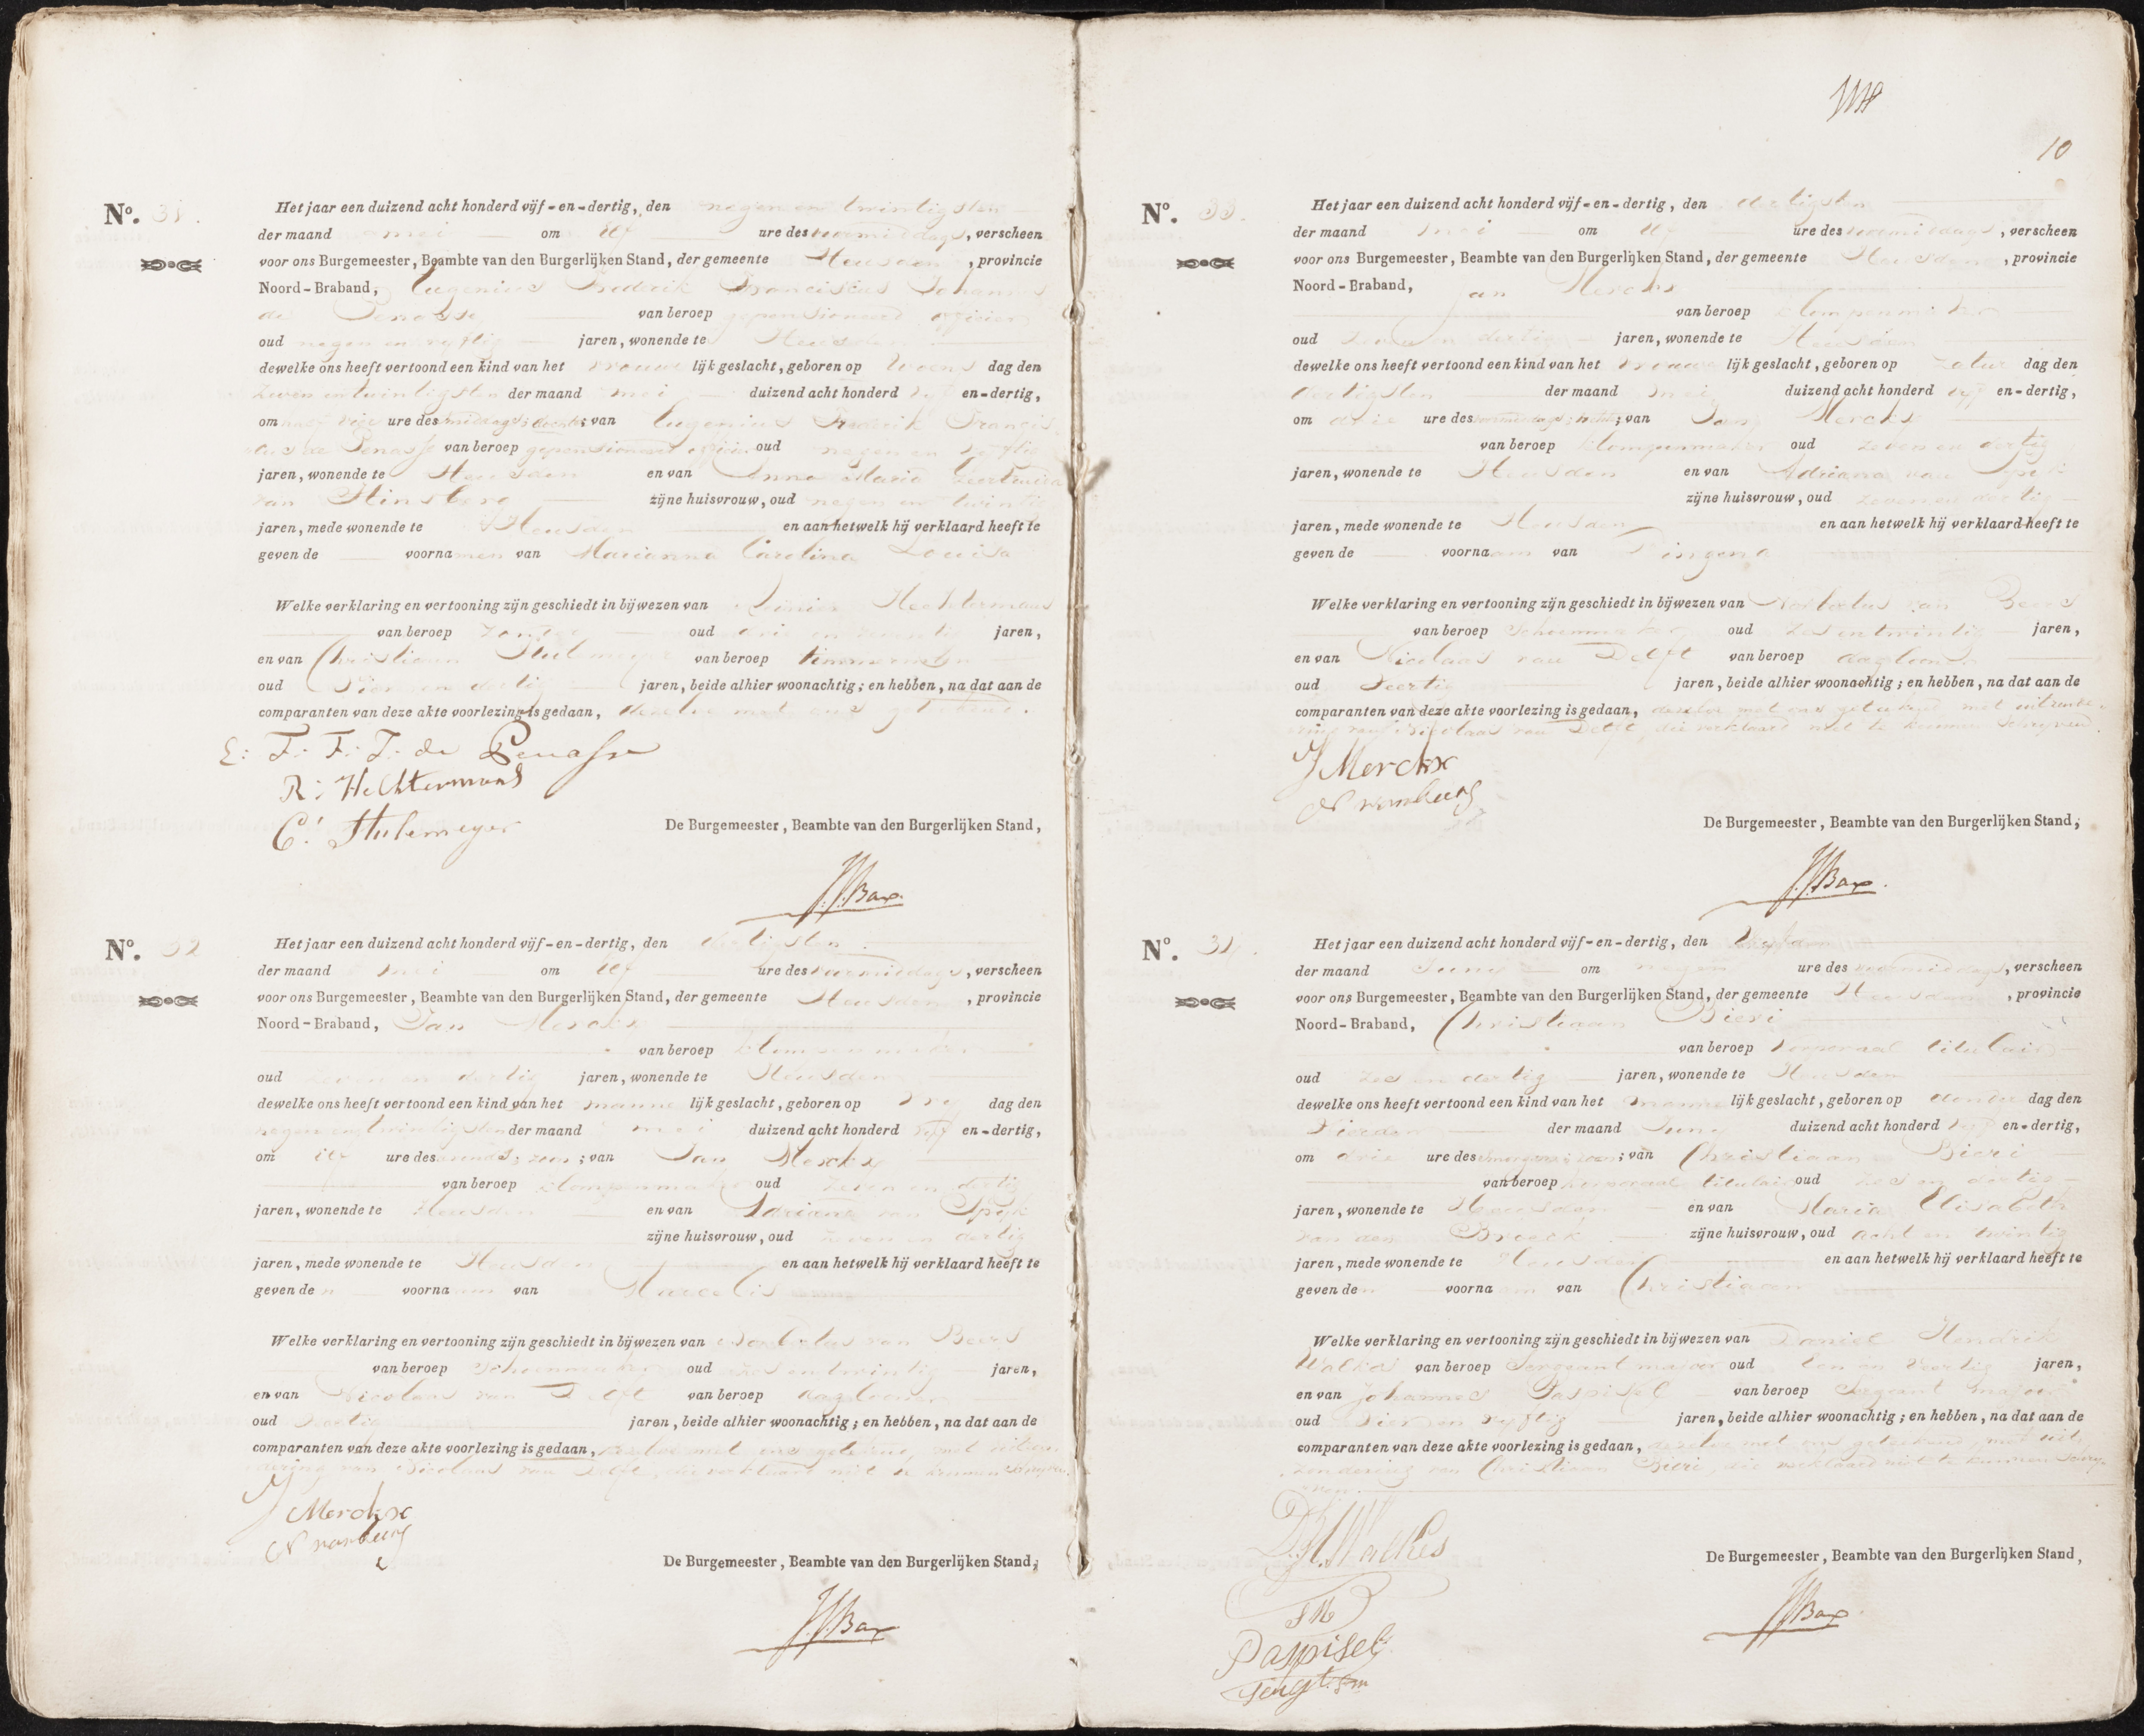 No. 31.
Het jaar een duizend acht honderd vijf-en-dertig, den negen en twintigsten
der maand mei om elf ure des voormiddags, verscheen
voor ons Burgemeester, Beambte van den Burgerlijken Stand, der gemeente Heusden, provincie
Noord-Braband, Eugenius Frederik Franciscus Johannes
de Penasse van beroep gepensioneerd officier
oud negen en vyftig jaren, wonende te Heusden
dewelke ons heeft vertoond een kind van het vrouwe lijk geslacht, geboren op woens dag den
zeven en twintigsten der maand mei duizend acht honderd vyf en-dertig,
om ure des middags; dochter; van Eugenius Frederik Francis
cus de Penasse van beroep gepensioneerd officier oud negen en vyftig
jaren, wonende te Heusden en van Anna Maria Geertruida
van Hinsberg zijne huisvrouw, oud negen en twintig
jaren, mede wonende te Heusden en aan hetwelk hij verklaard heeft te
geven de voornamen van Marianna Carolina Louisa
Welke verklaring en vertooning zijn geschiedt in bijwezen van Reinier Hechtermans
van beroep oud drie en jaren,
en van Christiaan Stulemeyer van beroep timmerman
oud en dertig jaren, beide alhier woonachtig; en hebben, na dat aan de
comparanten van deze akte voorlezing is gedaan, dezelve met ons getekend.
E: F: F: J: de Penasse
R: Hechtermans
C: Stulemeyer
De Burgemeester, Beambte van den Burgerlijken Stand,
J.J. Bax.
No. 32
Het jaar een duizend acht honderd vijf-en-dertig, den dertigsten
der maand mei om elf ure des voormiddags, verscheen
voor ons Burgemeester, Beambte van den Burgerlijken Stand, der gemeente Heusden, provincie
Noord-Braband, Jan Merckx
van beroep klompenmaker
oud zeven en dertig jaren, wonende te Heusden
dewelke ons heeft vertoond een kind van het manne lijk geslacht, geboren op vry dag den
negen en twintigsten der maand mei duizend acht honderd vyf en-dertig,
om elf ure des avonds; zoon; van Jan Merckx
van beroep klompenmaker oud zeven en dertig
jaren, wonende te Heusden en van Adriana van Spyk
zijne huisvrouw, oud zeven en dertig
jaren, mede wonende te Heusden en aan hetwelk hij verklaard heeft te
geven den voornaam van Marcelis
Welke verklaring en vertooning zijn geschiedt in bijwezen van Norbertus van Beurs
van beroep Schoenmaker oud zes en twintig jaren,
en van Nicolaas van Delft van beroep dagloner
oud Veertig jaren, beide alhier woonachtig; en hebben, na dat aan de
comparanten van deze akte voorlezing is gedaan, dezelve met ons getekend, met uitzon
dering van Nicolaas van Delft, die verklaard niet te kunnen schryven.
J Merckx
De Burgemeester, Beambte van den Burgerlijken Stand,
J.J. Bax
10
No. 33.
Het jaar een duizend acht honderd vijf-en-dertig, den dertigsten
der maand mei om elf ure des voormiddags, verscheen
voor ons Burgemeester, Beambte van den Burgerlijken Stand, der gemeente Heusden, provincie
Noord-Braband, Jan Merckx
van beroep klompenmaker
oud zeven en dertig jaren, wonende te Heusden
dewelke ons heeft vertoond een kind van het vrouwe lijk geslacht, geboren op Satur dag den
dertigsten der maand mei duizend acht honderd vyf en-dertig,
om drie ure des voormiddags; dochter; van Jan Merckx
van beroep klompenmaker oud zeven en dertig
jaren, wonende te Heusden en van Adriana van Spyk
zijne huisvrouw, oud zeven en dertig
jaren, mede wonende te Heusden en aan hetwelk hij verklaard heeft te
geven de voornaam van Dingena
Welke verklaring en vertooning zijn geschiedt in bijwezen van Norbertus van Beurs
van beroep Schoenmaker oud zes en twintig jaren,
en van Nicolaas van Delft van beroep dagloner
oud Veertig jaren, beide alhier woonachtig; en hebben, na dat aan de
comparanten van deze akte voorlezing is gedaan, dezelve met ons getekend met uitzonde
ring van Nicolaas van Delft, die verklaard niet te kunnen schryven.
J Merckx
De Burgemeester, Beambte van den Burgerlijken Stand,
J.J. Bax.
No. 34.
Het jaar een duizend acht honderd vijf-en-dertig, den
der maand Juny om negen ure des voormiddags, verscheen
voor ons Burgemeester, Beambte van den Burgerlijken Stand, der gemeente Heusden, provincie
Noord-Braband, Christiaan Bieri
van beroep korporaal titulair
oud zes en dertig jaren, wonende te Heusden
dewelke ons heeft vertoond een kind van het manne lijk geslacht, geboren op donder dag den
Vierden der maand Juny duizend acht honderd vyf en-dertig,
om drie ure des smorgens; zoon; van Christiaan Bieri
van beroep korporaal titulair oud zes en dertig
jaren, wonende te Heusden en van Maria Elisabeth
van den Broeck zijne huisvrouw, oud acht en twintig
jaren, mede wonende te Heusden en aan hetwelk hij verklaard heeft te
geven den voornaam van Christiaan
Welke verklaring en vertooning zijn geschiedt in bijwezen van Daniel Hendrik
Walkes van beroep Sergeant majoor oud Een en Veertig jaren,
en van Johannes Paspisel van beroep Sergeant majoor
oud Vier en vyftig jaren, beide alhier woonachtig; en hebben, na dat aan de
comparanten van deze akte voorlezing is gedaan, dezelve met ons getekend, met uit
zondering van Christiaan Bieri, die verklaard niet te kunnen schry
ven.
D.H. Walkes
Paspisel
De Burgemeester, Beambte van den Burgerlijken Stand,
J.J. Bax